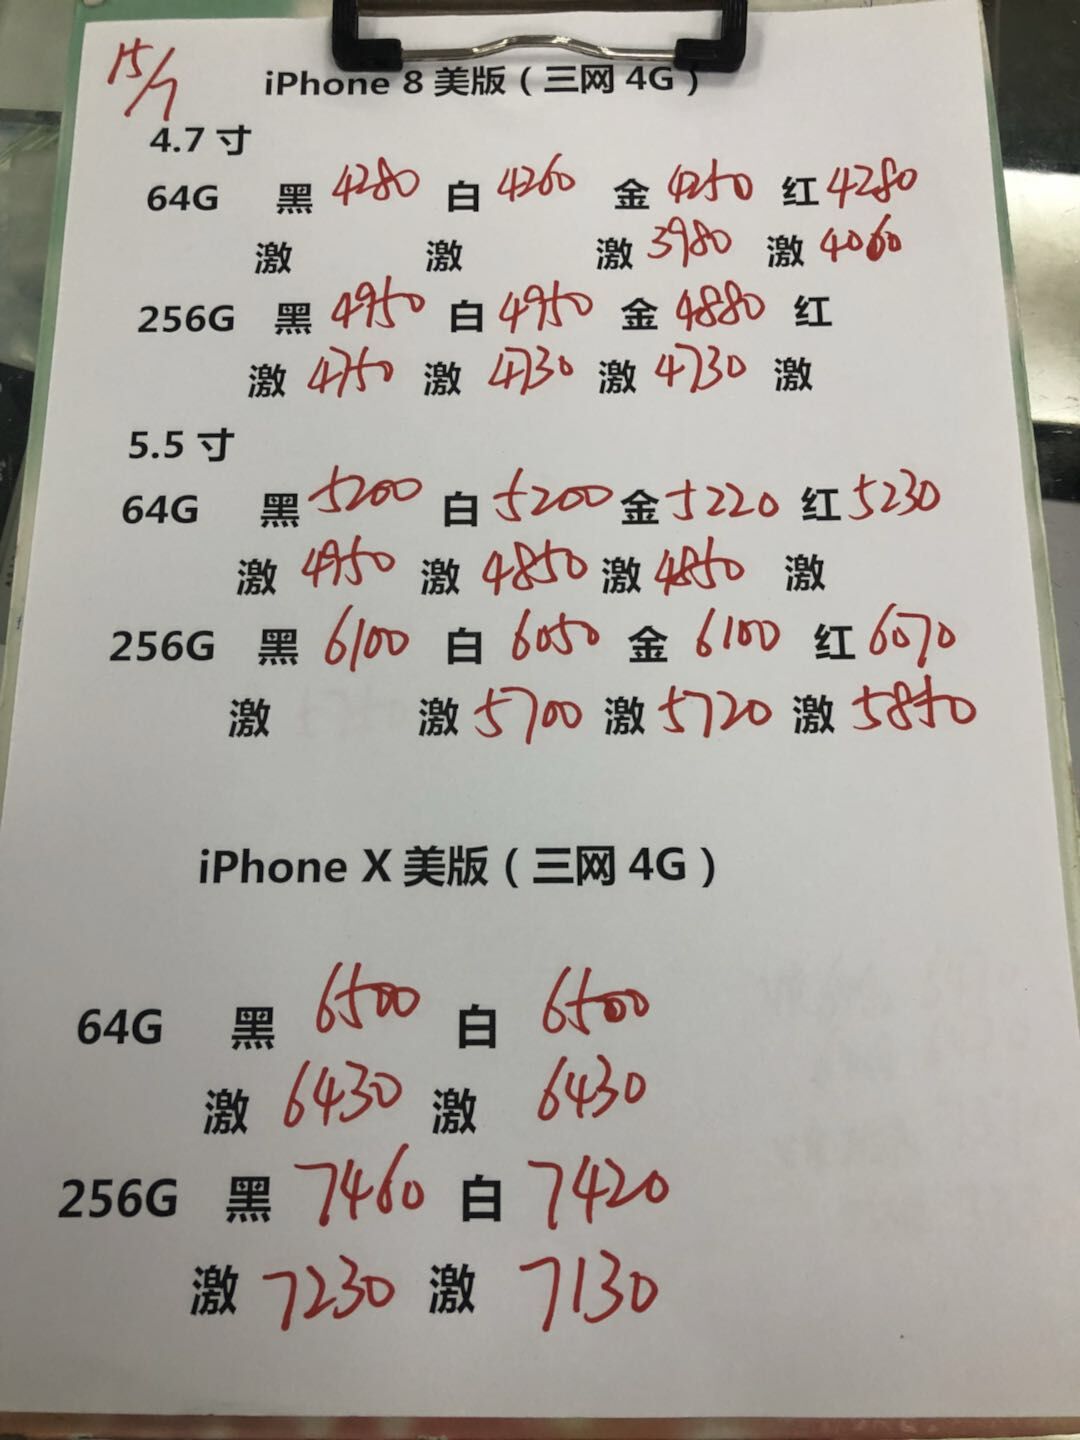 15/7
iPhone 8 美版（三网 4G）
4.7 寸
64G 黑 4280 白 4260 金 4250 红 4280
激 激 激 3980 激 4060
256G 黑 4950 白 4950 金 4880 红
激 4750 激 4730 激 4730 激
5.5 寸
64G 黑 5200 白 5200 金 5220 红 5230
激 4950 激 4850 激 4850 激
256G 黑 6100 白 6050 金 6100 红 6070
激 激 5700 激 5720 激 5850
iPhone X 美版（三网 4G）
64G 黑 6500 白 6500
激 6430 激 6430
256G 黑 7460 白 7420
激 7230 激 7130